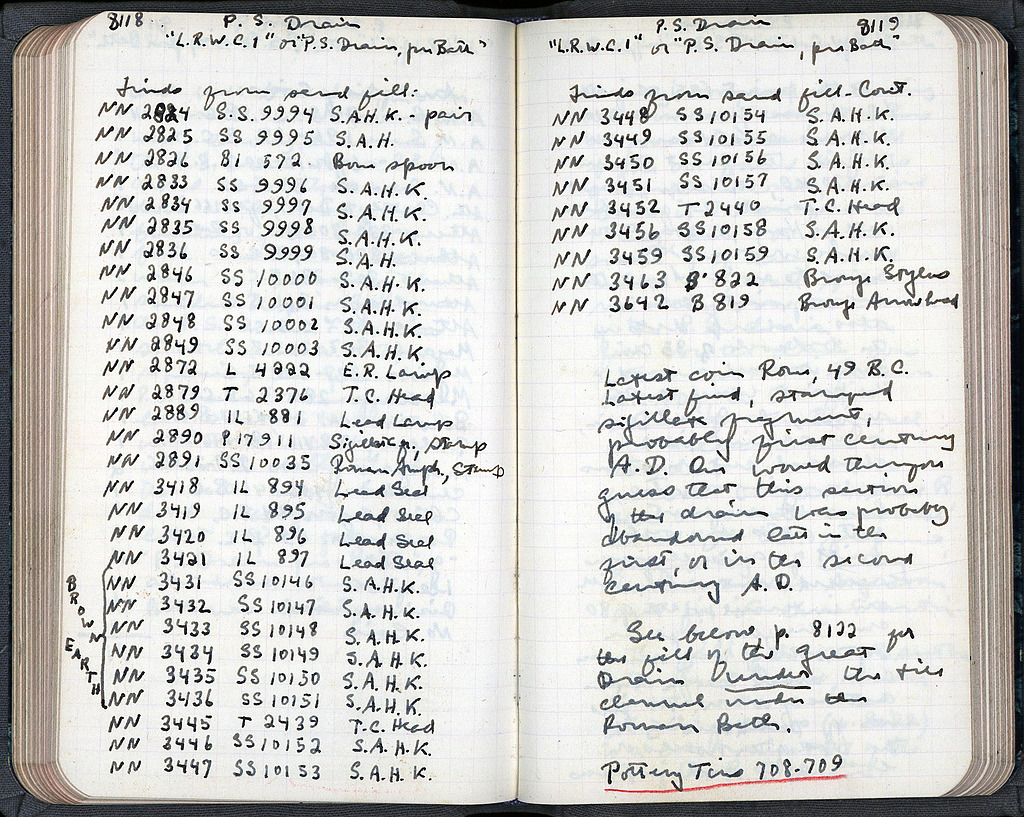 8118
P. S. Drain
"L.R.W.C.1" or "P.S. Drain, pre Bath"
Finds from sand fill:
NN 2824 S.S. 9994 S.A.H.K. - pair
NN 2825 SS 9995 S.A.H.
NN 2826 BI 572. Bone spoon
NN 2833 SS 9996 S.A.H.K.
NN 2834 SS 9997 S.A.H.K.
NN 2835 SS 9998 S.A.H.K.
NN 2836 SS 9999 S.A.H.
NN 2846 SS 10000 S.A.H.K.
NN 2847 SS 10001 S.A.H.K.
NN 2848 SS 10002 S.A.H.K.
NN 2849 SS 10003 S.A.H.K.
NN 2872 L 4222 E.R. Lamp
NN 2879 T 2376 T.C. Head
NN 2889 IL 881 Lead Lamp
NN 2890 P17911 Sigillata fr., Stamp
NN 2891 SS 10035 Roman Amph., Stamp
NN 3418 IL 894 Lead Seal
NN 3419 IL 895 Lead Seal
NN 3420 IL 896 Lead Seal
NN 3421 IL 897 Lead Seal
BROWN EARTH
NN 3431 SS 10146 S.A.H.K.
NN 3432 SS 10147 S.A.H.K.
NN 3433 SS 10148 S.A.H.K.
NN 3434 SS 10149 S.A.H.K.
NN 3435 SS 10150 S.A.H.K.
NN 3436 SS 10151 S.A.H.K.
NN 3445 T 2439 T.C. Head
NN 3446 SS 10152 S.A.H.K.
NN 3447 SS 10153 S.A.H.K.
P.S. Drain
8119
"L.R.W.C.1" or "P.S. Drain, pre Bath"
Finds from sand fill - Cont.
NN 3448 SS 10154 S.A.H.K.
NN 3449 SS 10155 S.A.H.K.
NN 3450 SS 10156 S.A.H.K.
NN 3451 SS 10157 S.A.H.K.
NN 3452 T 2440 T.C. Head
NN 3456 SS 10158 S.A.H.K.
NN 3459 SS 10159 S.A.H.K.
NN 3463 B 822 Bronze Stylus
NN 3642 B 819 Bronze Arrowhead
Latest coin Rom, 49 B.C.
Latest find, stamped
sigillata fragment,
probably first century
A.D. One would therefore
guess that this section
of the drain was probably
abandoned late in the
first, or in the second
century A.D.
See below p. 8122 for
the fill of the great
Drain under the tile
channel under the
Roman Bath.
Pottery Tins 708-709